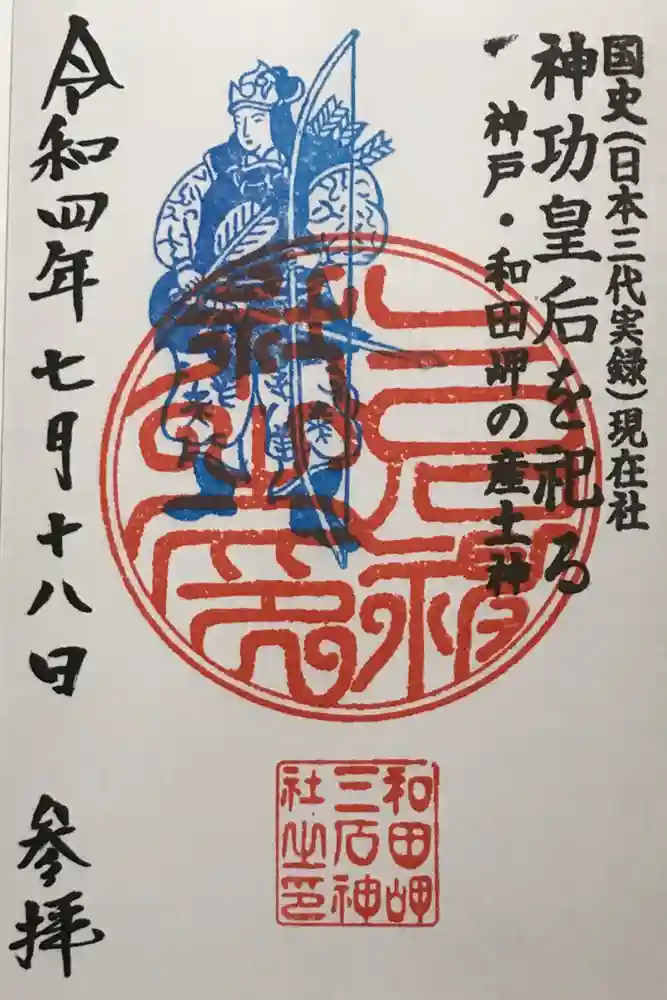 国史(日本三代実録)現在社
神功皇后を祀る
一 神戸・和田岬の産土神
三石神
社之印
和田岬
三石神
社之印
令和四年七月十八日 参拝